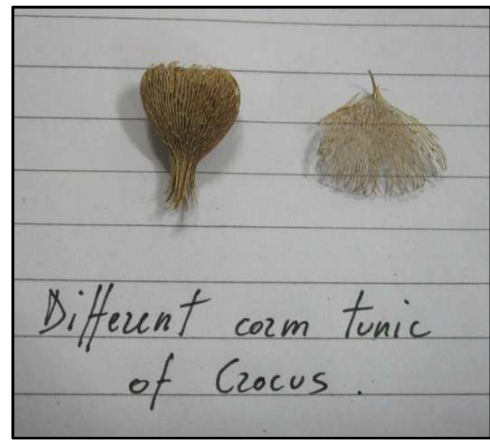 Different corm tunic
of Crocus.